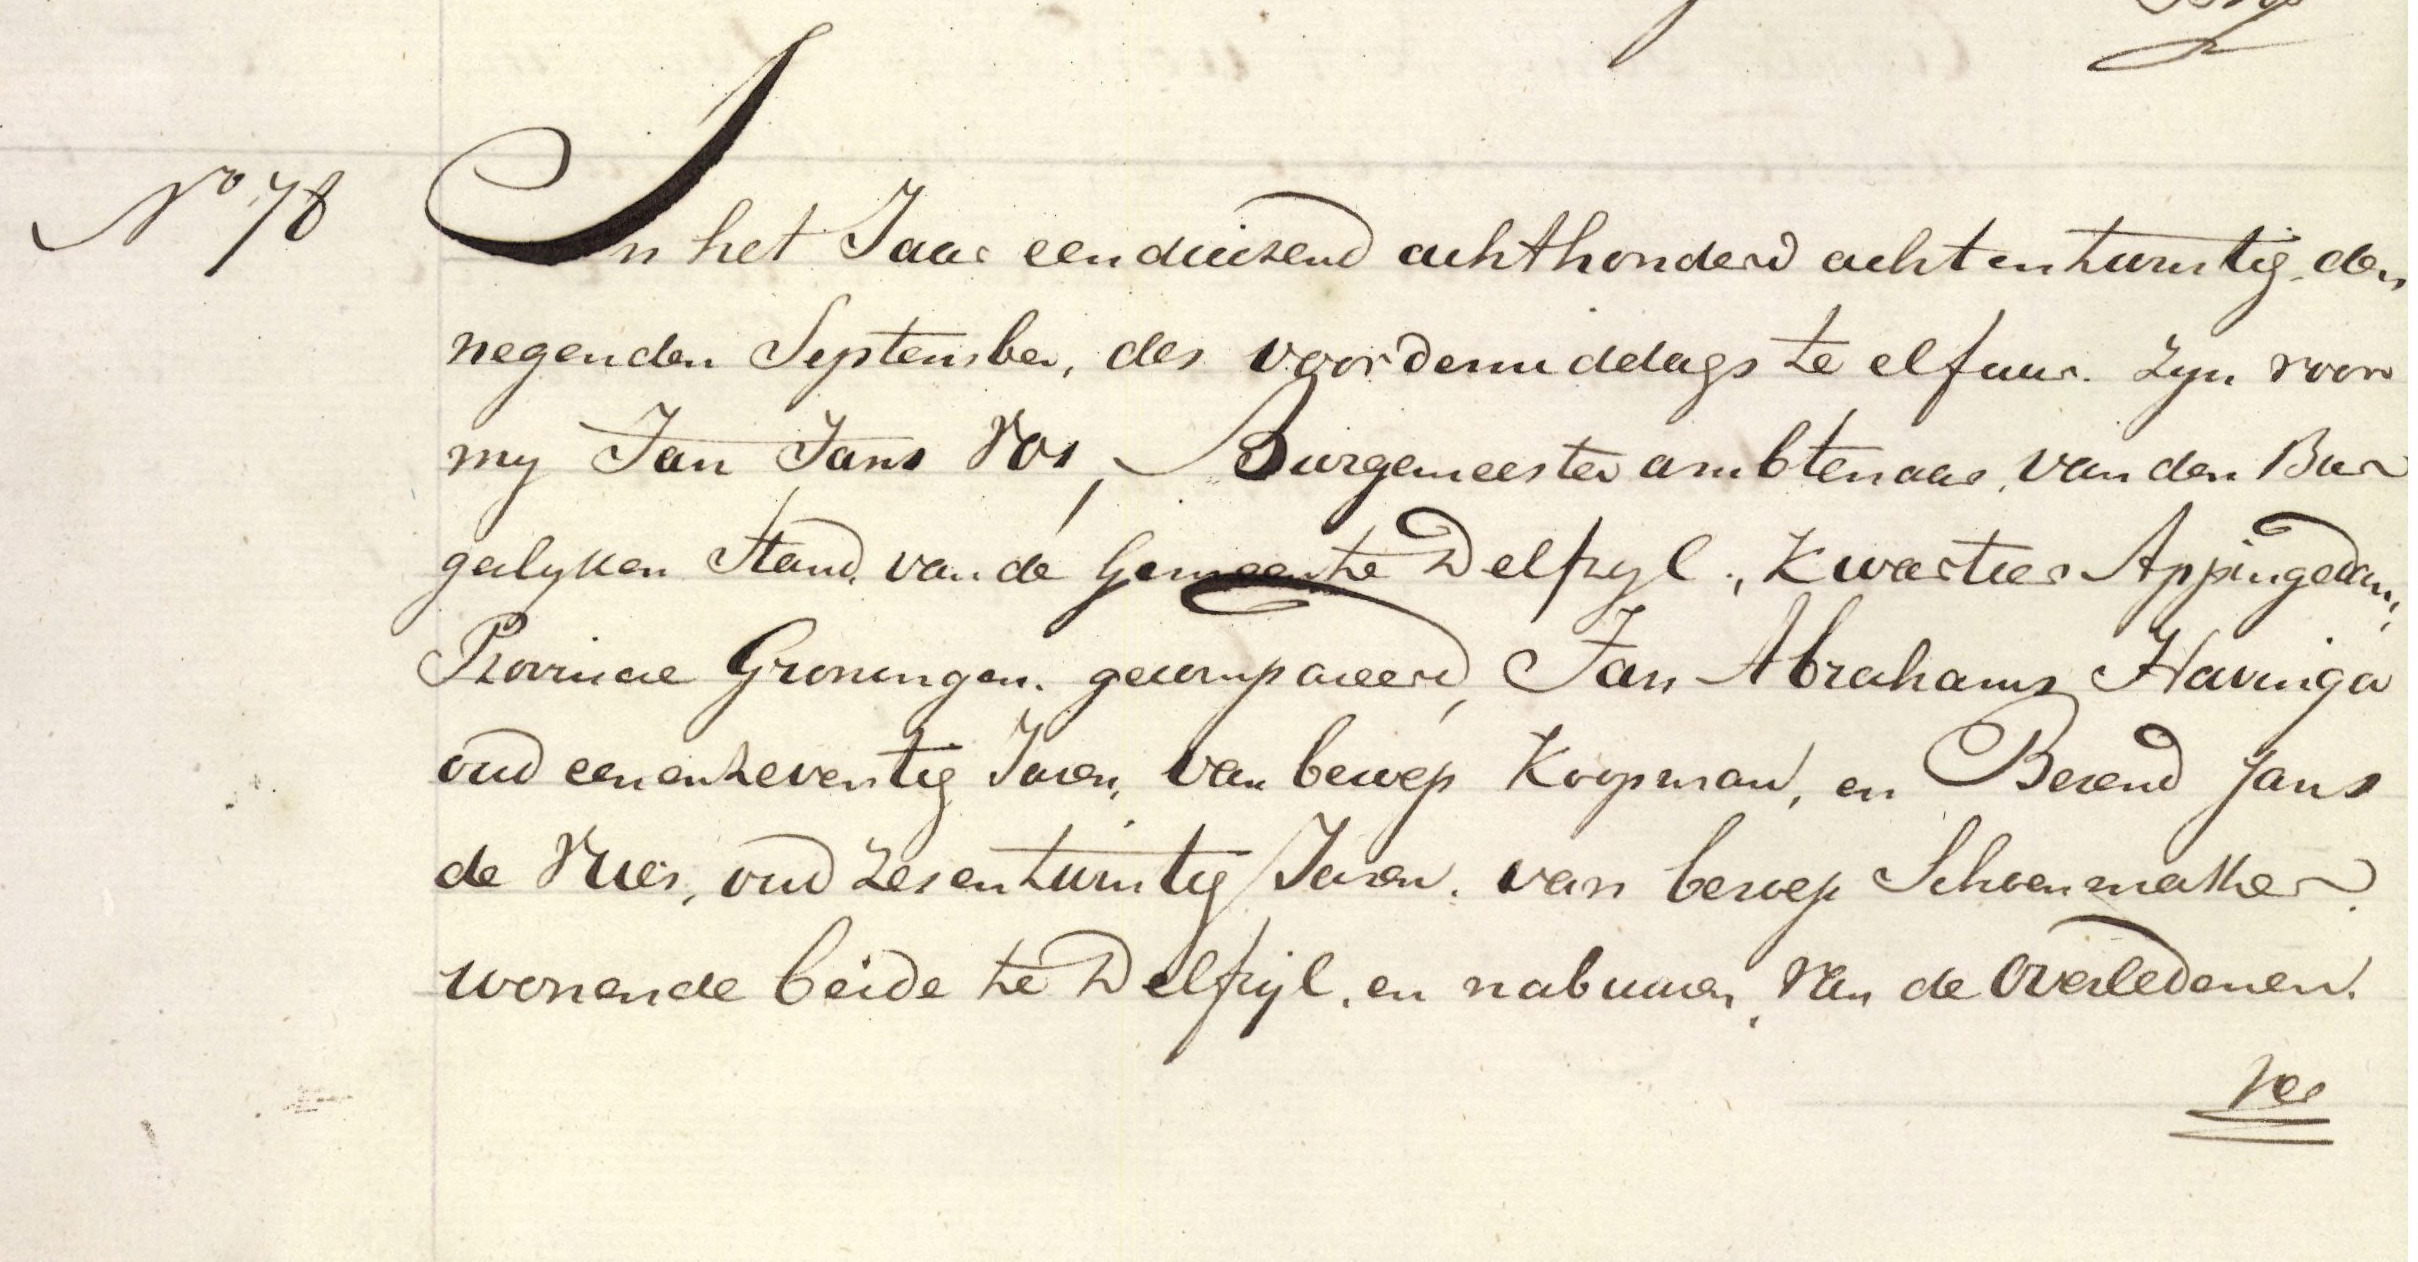 N.o 78
In het Jaar eenduizend achthonderd achtentwintig, den
negenden September, des voordemiddags te elf uur. zyn voor
my Jan Jans Vos, Burgemeester ambtenaar, van den Bur
gerlyken Stand, van de Gemeente Delfzyl, Kwartier Appingedam,
Provincie Groningen. gecompareerd, Jan Abrahams Havinga
oud eenenzeventig Jaren, van beroep Koopman, en Berend Jans
de Vries, oud zesentwintig Jaren. van beroep Schoenmaker.
wonende beide te Delfzyl, en naburen, van de Overledenen.